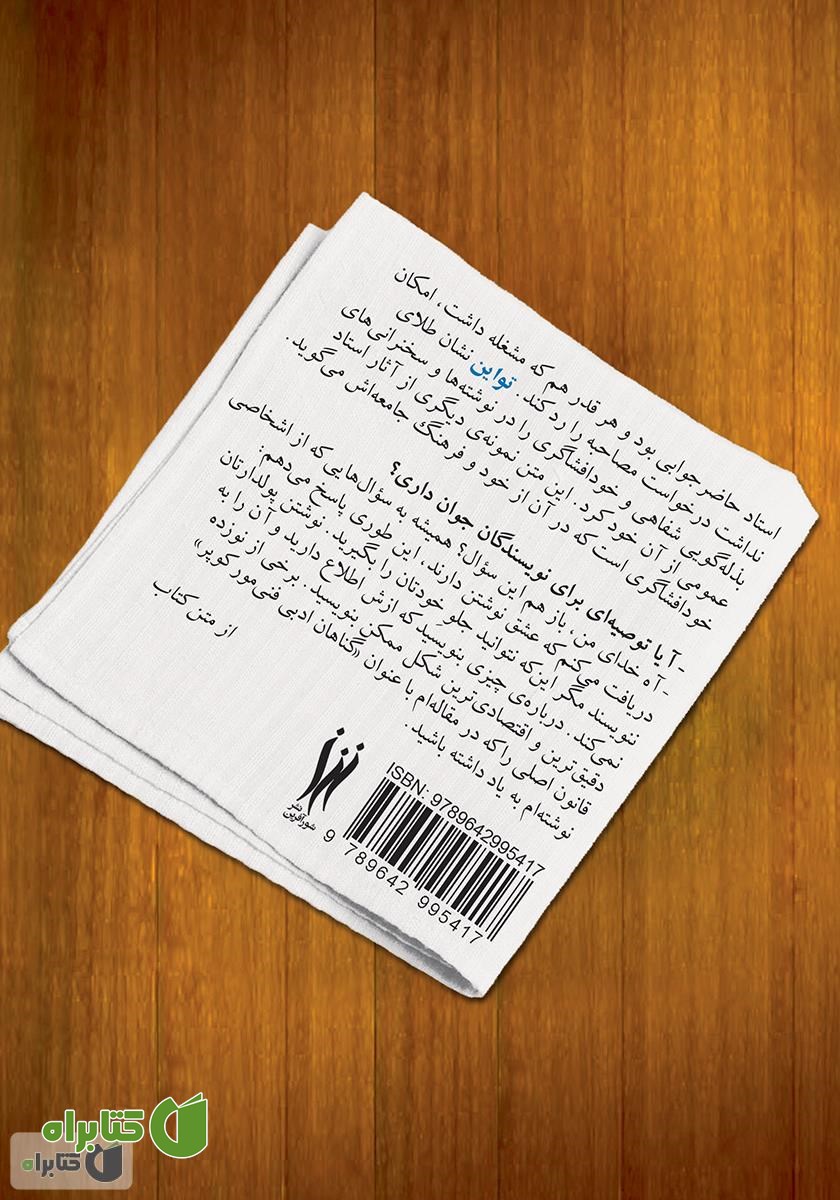 استاد حاضر جوابی بود و هر قدر هم که مشغله داشت، امکان
نداشت درخواست مصاحبه را رد کند. تواین نشان طلای
بذله‌گویی شفاهی و خودافشاگری را در نوشته‌ها و سخنرانی‌های
عمومی از آن خود کرد. این متن نمونه‌ی دیگری از آثار استاد
خودافشاگری است که در آن از خود و فرهنگ جامعه‌اش می‌گوید.
-آیا توصیه‌ای برای نویسندگان جوان داری؟
-آه خدای من، باز هم این سؤال؟ همیشه به سؤال‌هایی که از اشخاصی
دریافت می‌کنم که عشق نوشتن دارند، این طوری پاسخ می‌دهم:
ننویسند مگر این‌که نتوانید جلوِ خودتان را بگیرید. نوشتن پولدارتان
نمی‌کند. درباره‌ی چیزی بنویسید که ازش اطلاع دارید و آن را به
دقیق‌ترین و اقتصادی‌ترین شکل ممکن بنویسید. برخی از نوزده
قانون اصلی را که در مقاله‌ام با عنوان «گناهان ادبی فنی‌مور کوپر»
نوشته‌ام به یاد داشته باشید.
از متن کتاب
نشر
شورآفرین
ISBN: 9789642995417
9 789642 995417
کتابراه
کتابراه